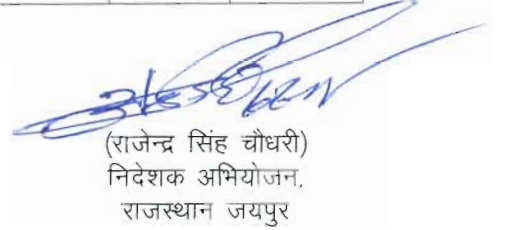 (राजेन्द्र सिंह चौधरी)
निदेशक अभियोजन,
राजस्थान जयपुर